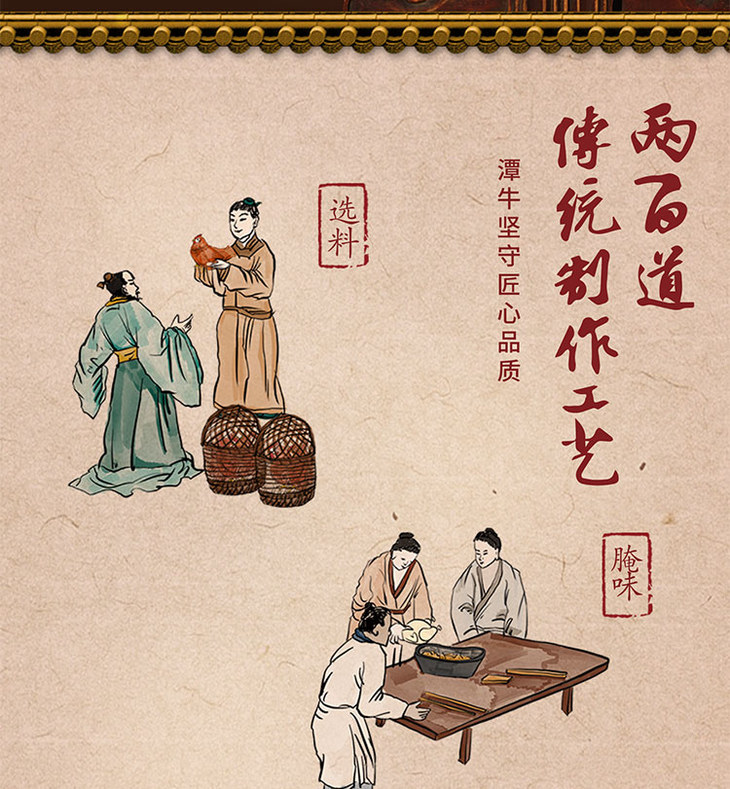 两百道
傳统制作工艺
潭牛坚守匠心品质
选料
腌味